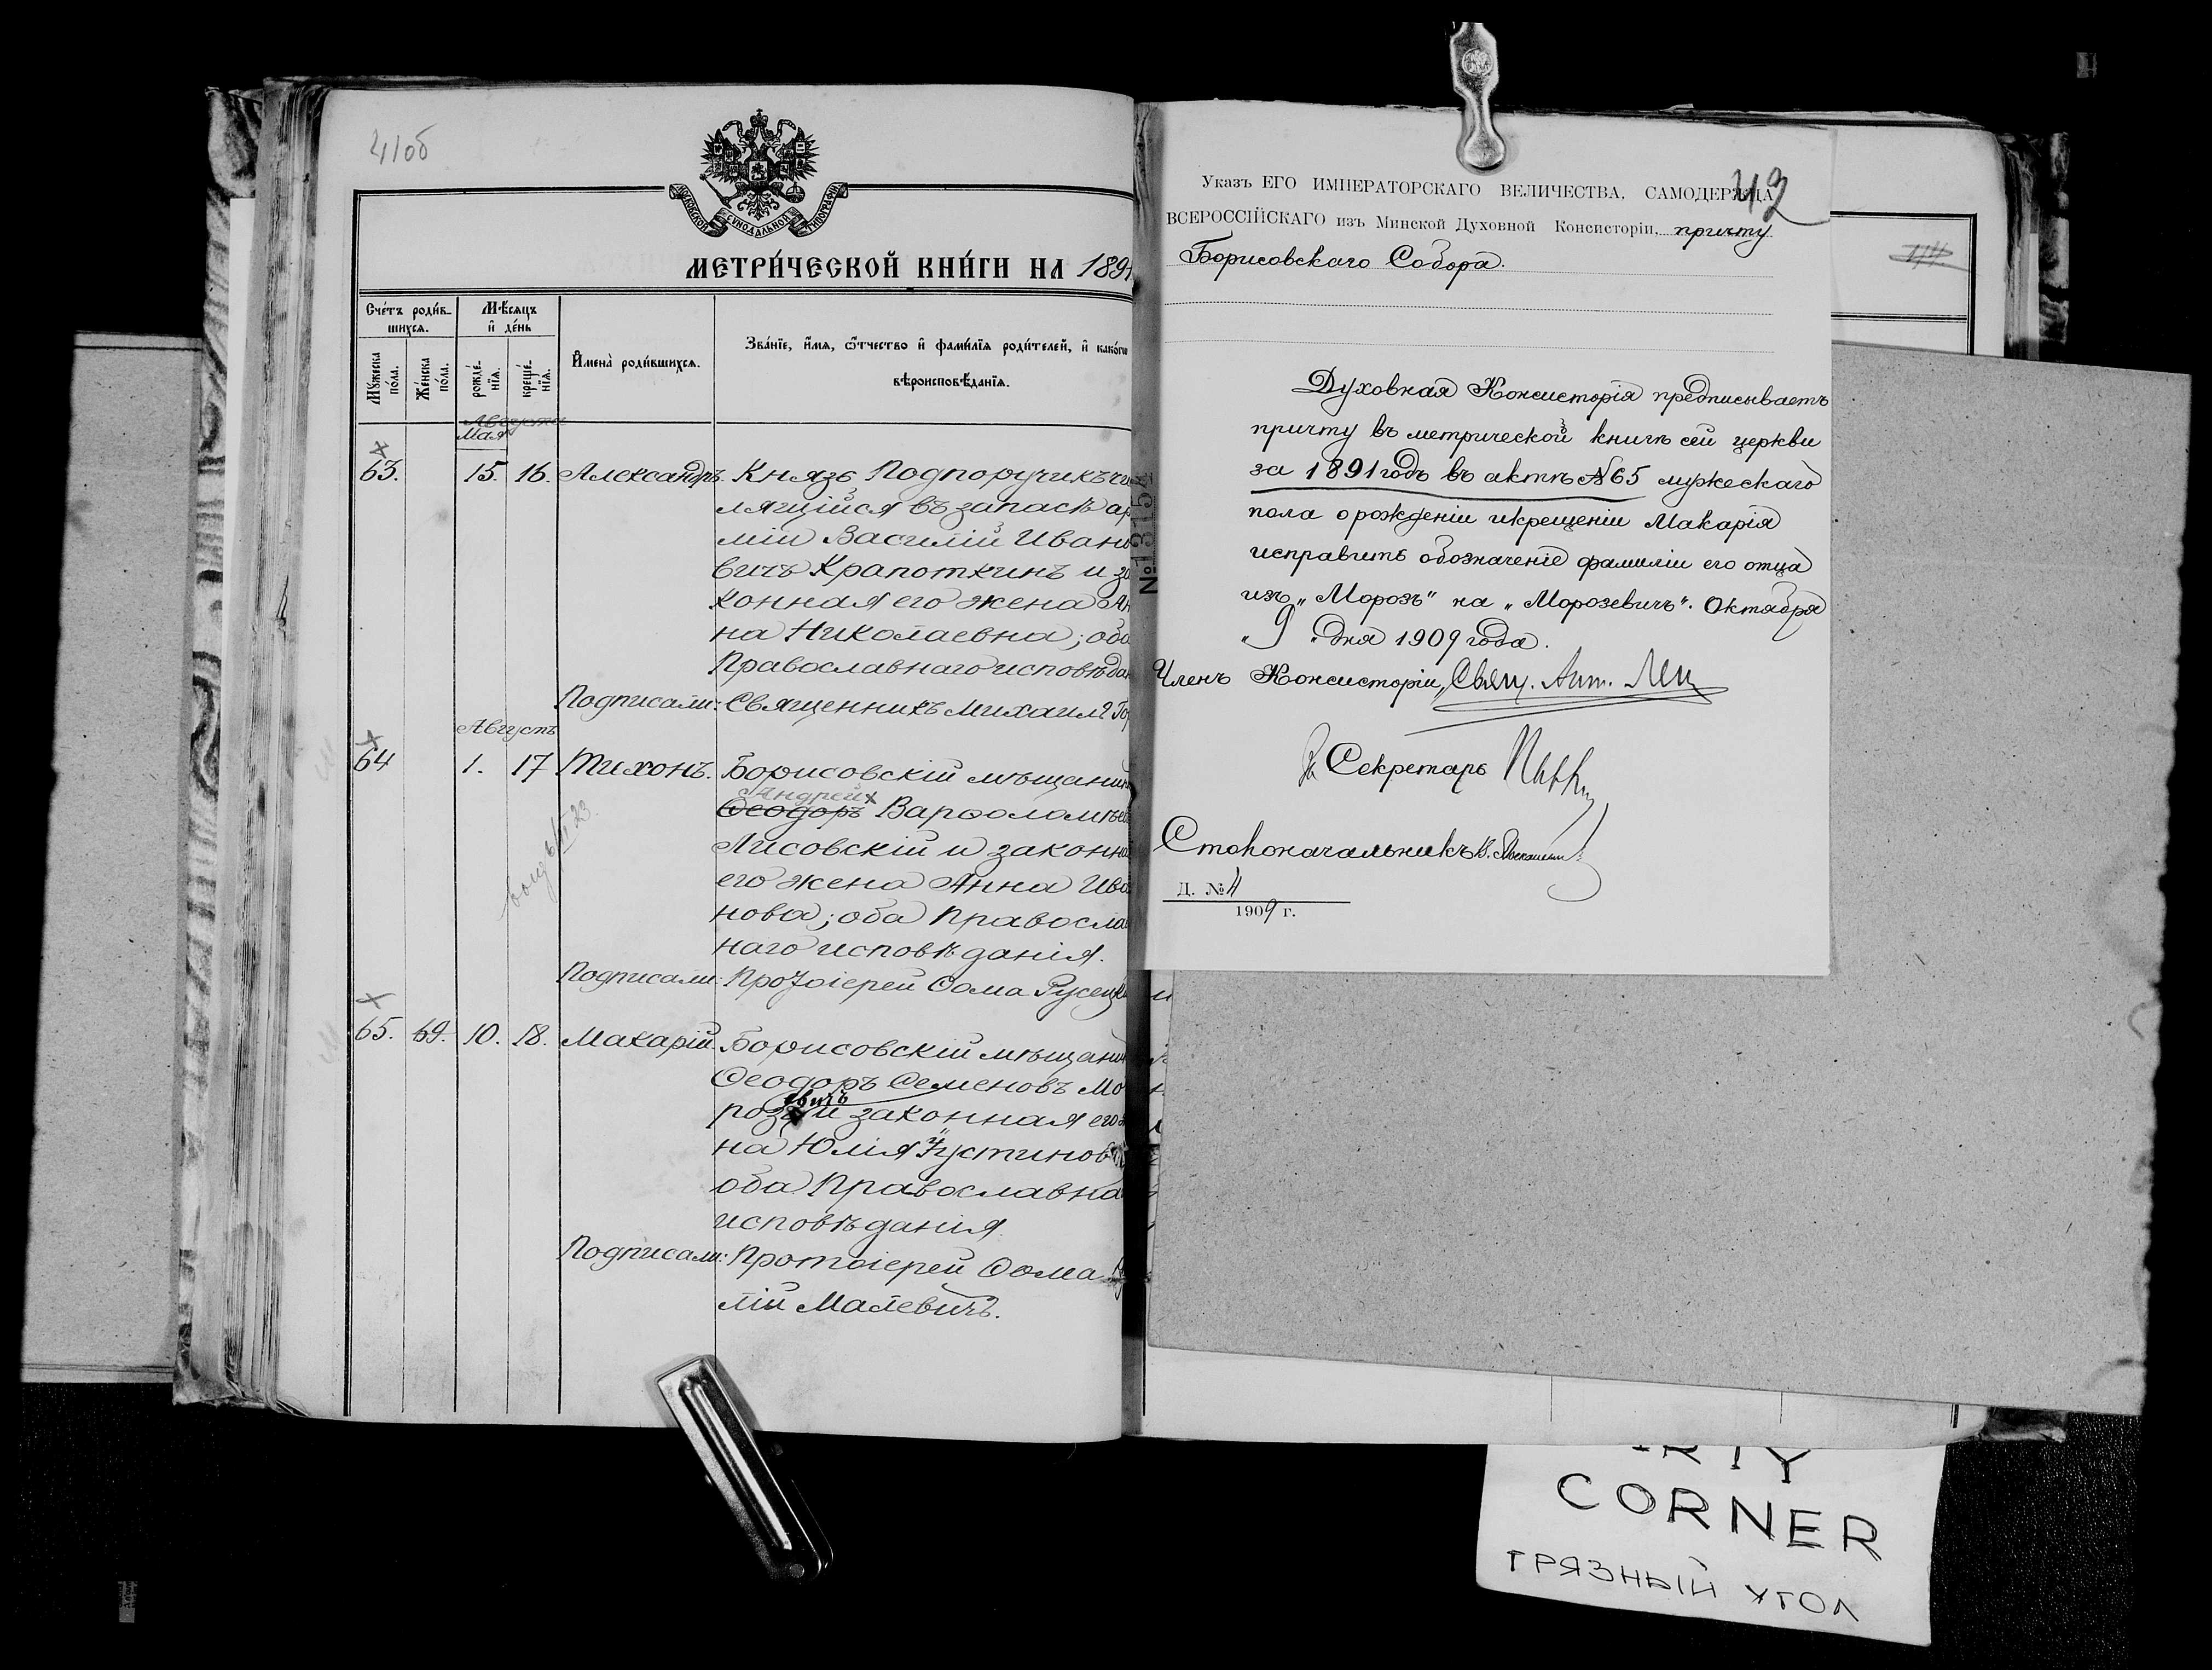 41об
МОСКОВСКОЙ СѴНОДАЛЬНОЙ ТИПОГРАФІИ
МЕТРИ́ЧЕСКОЙ КНИ́ГИ НА 1891
Счётъ роди́в-
шихся.
Мѣсяцъ
и де́нь
Мꙋ́жеска
по́ла.
Же́нска
по́ла.
рожде́-
нїѧ.
креще́-
нїѧ.
И҆мена̀ роди́вшихся.
Зва́нїе, и҆́мя, ѻ҆́тчество и҆ фами́лїя роди́телей, и҆ како́гѡ
вѣроисповѣ́данїя.
Августа
Мая
63. 15. 16. Александръ. Князь Подпоручикъ чи
лящійся въ запасѣ ар
міи Василій Ивано
вичъ Крапоткинъ и за
конная его жена Ан
на Николаевна; оба
Православнаго исповѣдан
Подписали: Священникъ Михаилъ Го
Августъ
64 1. 17 Тихонъ. Борисовскій мѣщанин
Андрей х
Ѳеодоръ Варѳоломѣев
Лисовскій и законна
его жена Анна Ива
нова; оба Правосла
наго исповѣданія.
Подписали: Протоіерей Ѳома Русецк
65. 69. 10. 18. Макарій. Борисовскій мѣщанин
Ѳеодоръ Семеновъ Мо
евичъ
розъ и законная его
на Юлія Іустинов
оба Православна
исповѣданія.
Подписали: Протоіерей Ѳома
лій Малевичъ.
№ 13154
42
Указъ ЕГО ИМПЕРАТОРСКАГО ВЕЛИЧЕСТВА, САМОДЕРЖЦА
ВСЕРОССІЙСКАГО изъ Минской Духовной Консисторіи, причту
Борисовскаго Собора.
Духовная Консисторія предписываетъ
причту въ метрической книгѣ сей церкви
за 1891 годъ въ актѣ №65 мужескаго
пола о рожденіи и крещеніи Макарія
исправить обозначеніе фамиліи его отца
изъ „Морозъ" на „Морозевичъ". Октября
„9" дня 1909 года.
Членъ Консисторіи, Свящ. Ант.
Секретарь
Столоначальникъ
Д. № 4
1909 г.
44.
CORNER
ГРЯЗНЫЙ УГОЛ